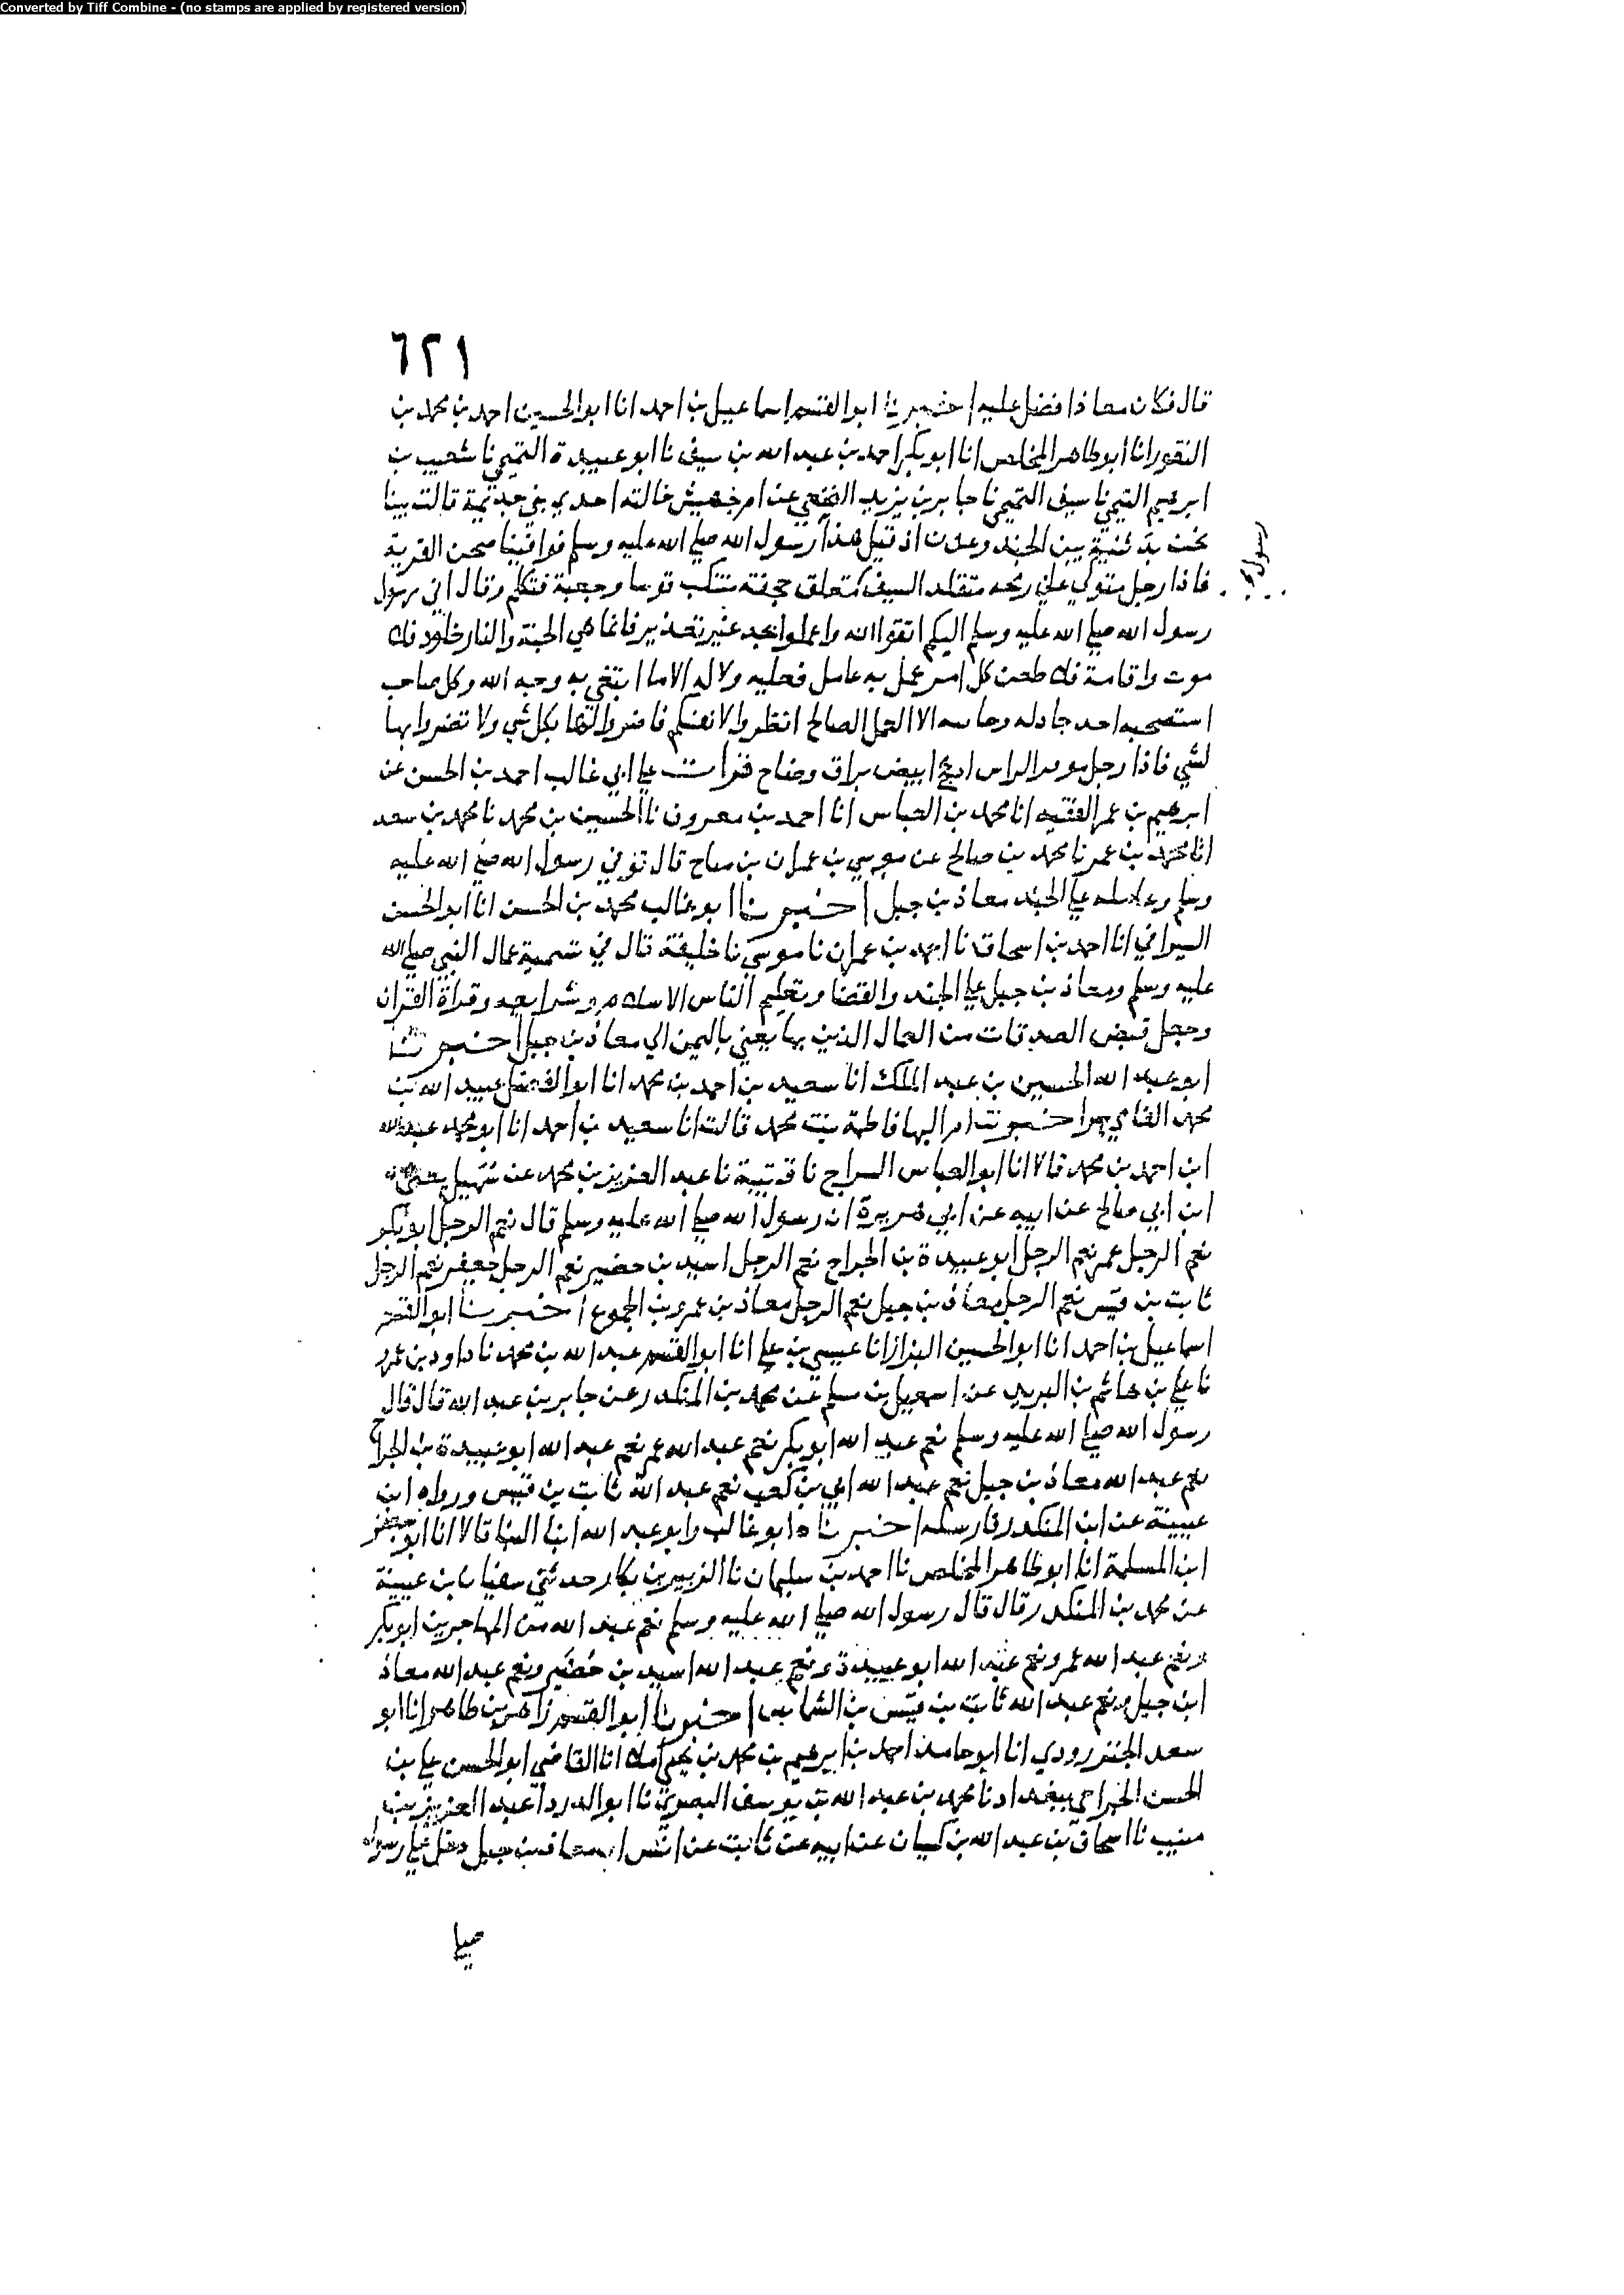 Converted by Tiff Combine - (no stamps are applied by registered version)
٦٢١
قال فكان معاذا فضل عليه اخبرنا ابو القسم اسماعيل بن احمد انا ابو الحسين احمد بن محمد بن
النقور انا ابو طاهر المخلص انا ابو بكر احمد بن عبد الله بن سيف نا ابو عبيدة التميمي نا شعيب بن
ابرهيم التيمي نا سيف التميمي نا جابر بن يزيد النخعي عن ام جهيش خالته احدي بني جذيمة قالت بينا
نحن بدثنية بين الجند وعدن اذ قيل هذا رسول الله صلي الله عليه وسلم فوافينا صحن القرية
فاذا رجل متوكي علي رمحه متقلد السيف متعلق حجفة متنكب قوسا وجعبة فتكلم وقال اني رسول
رسول الله صلي الله عليه وسلم اليكم اتقوا الله واعملوا بجد غير تعذير فانما هي الجنة والنار خلود فلا
موت واقامة فلا ظعن كل امر عمل به عامل فعليه ولا له الا ما ابتغي به وجه الله وكل صاحب
استصحبه احد خاذله الا العمل الصالح انظروا لانفسكم بكل شي ولا تضروا بها
لشي فاذا رجل الراس ادعج ابيض براق وضاح قرات علي ابي غالب احمد بن الحسن عن
ابرهيم بن عمر الفقيه انا محمد بن العباس انا احمد بن معروف نا الحسين بن محمد نا محمد بن سعد
انا محمد بن عمر نا محمد بن صالح عن موسي بن عمران بن مناح قال توفي رسول الله صلي الله عليه
وسلم وعامله علي الجند معاذ بن جبل اخبرنا ابو غالب محمد بن الحسن انا ابو الحسن
السيرافي انا احمد بن اسحاق نا احمد بن عمران نا موسى نا خليفة قال في تسمية عمال النبي صلي الله
عليه وسلم ومعاذ بن جبل علي الجند والقضا وتعليم الناس الاسلام وشرايعه وقراة القران
وجعل قبض الصدقات من العمال الذين بها يعني باليمن الي معاذ بن جبل اخبرنا
ابو عبد الله الحسين بن عبد الملك انا سعيد بن احمد بن محمد انا ابو الفضل عبيد الله بن
محمد الفامي ح واخبرتنا ام البها فاطمة بنت محمد قالت انا سعيد بن احمد انا ابو محمد عبد الله
ابن احمد بن محمد قالا انا ابو العباس السراج نا قتيبة نا عبد العزيز بن محمد عن سهيل يعني
ابن ابي صالح عن ابيه عن ابي هريرة ان رسول الله صلي الله عليه وسلم قال نعم الرجل ابو بكر
نعم الرجل عمر نعم الرجل ابو عبيدة بن الجراح نعم الرجل اسيد بن حضير نعم الرجل جعفر نعم الرجل
ثابت بن قيس نعم الرجل معاذ بن جبل نعم الرجل معاذ بن عمرو بن الجموع اخبرنا ابو القسم
اسماعيل بن احمد انا ابو الحسين البزاز انا عيسي بن علي انا ابو القسم عبد الله بن محمد نا داود بن عمرو
نا علي بن هاشم بن البريد عن اسمعيل بن مسلم عن محمد بن المنكدر عن جابر بن عبد الله قال قال
رسول الله صلي الله عليه وسلم نعم عبد الله ابو بكر نعم عبد الله عمر نعم عبد الله ابو عبيدة بن الجراح
نعم عبد الله معاذ بن جبل نعم عبد الله ابي بن كعب نعم عبد الله ثابت بن قيس ورواه ابن
عيينة عن ابن المنكدر فارسله اخبرناه ابو غالب وابو عبد الله ابنا البنا قالا انا ابو جعفر
ابن المسلمة انا ابو طاهر المخلص نا احمد بن سليمان نا الزبير بن بكار حدثني سفيان بن عيينة
عن محمد بن المنكدر قال قال رسول الله صلي الله عليه وسلم نعم عبد الله من المهاجرين ابو بكر
ونعم عبد الله عمر ونعم عبد الله ابو عبيدة ونعم عبد الله اسيد بن حضير ونعم عبد الله معاذ
ابن جبل ونعم عبد الله ثابت بن قيس بن الشماس اخبرنا ابو القسم زاهر بن طاهر انا ابو
سعد الجنزرودي انا ابو حامد احمد بن ابرهيم بن محمد بن يحيى املا انا القاضي ابو الحسن علي بن
الحسن الجراحي ببغداد نا محمد بن عبد الله بن يوسف البصري نا ابو الدردا عبد العزيز بن
منيب نا اسحاق بن عبد الله بن كيسان عن ابيه عن ثابت عن انس ان معاذ بن جبل دخل علي رسول
رسول